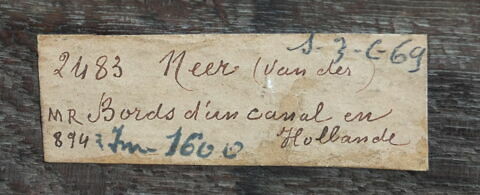 S-3-C-69
2483 Neer (van der)
MR Bords d'un canal en
894 Hollande
Inv 1600